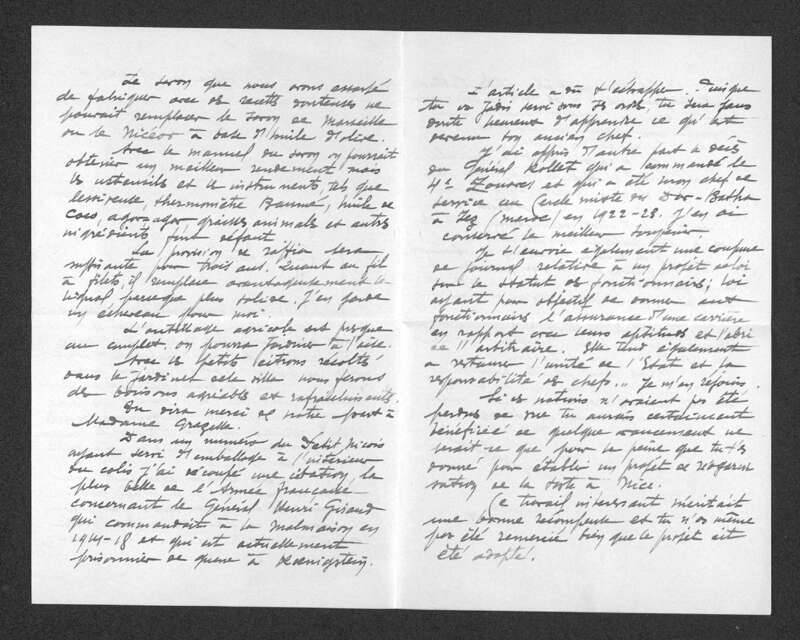 Le savon que nous avons essayé
de fabriquer avec des recettes douteuses ne
pourrait remplacer le savon de Marseille
ou le Nicéor à base d'huile d'olive.
Avec le manuel du savon on pourrait
obtenir un meilleur rendement mais
les ustensiles et les instruments, tels que
lessiveuse, thermomètre Baumé, huile de
coco, agar-agar graisses animales et autres
ingrédients font défaut.
La provision de raffia sera
suffisante pour trois ans. Quant au fil
à filets, il remplace avantageusement le
ligneul, parce que plus solide. J'en garde
un écheveau pour moi.
L'outillage agricole est presque
au complet, on pourra jardiner à l'aise.
Avec les petits citrons récoltés
dans le jardinet de la ville nous ferons
des boissons agréables et rafraîchissantes.
Tu diras merci de notre part à
Madame
Dans un numéro du Petit Niçois
ayant servi d'emballage à l'intérieur
du colis j'ai découpé une citation, la
plus belle de l'Armée française
concernant le Général Henri Giraud
qui commandait à la Malmaison en
1914-18 et qui est actuellement
prisonnier de guerre à Koenigstein.
L'article a dû t'échapper. Puisque
tu as jadis servi sous ses ordres tu seras sans
doute heureux d'apprendre ce qu'est
devenu ton ancien chef.
J'ai appris d'autre part le décès
du Général Rollet qui a commandé le
4e Zouaves et qui a été mon chef de
service au Cercle mixte de Dar-Batha
à Fez (Maroc) en 1922-23. J'en ai
conservé le meilleur souvenir.
Je t'envoie également une coupure
de journal relative à un projet de loi
sur le statut des fonctionnaires; loi
ayant pour objectif de donner aux
fonctionnaires l'assurance d'une carrière
en rapport avec leurs aptitudes et à l'abri
de l'arbitraire. Elle tend également
à restaurer l'unité de l'État et la
responsabilité des chefs... Je m'en réjouis.
Si ces notions n'avaient pas été
perdues de vue tu aurais certainement
bénéficié de quelque avancement ne
serait-ce que pour la peine que tu t'es
donné pour établir un projet de réorgani
sation de la Poste à Nice.
Ce travail intéressant méritait
une bonne récompense et tu n'as même
pas été remercié bien que le projet ait
été adopté.